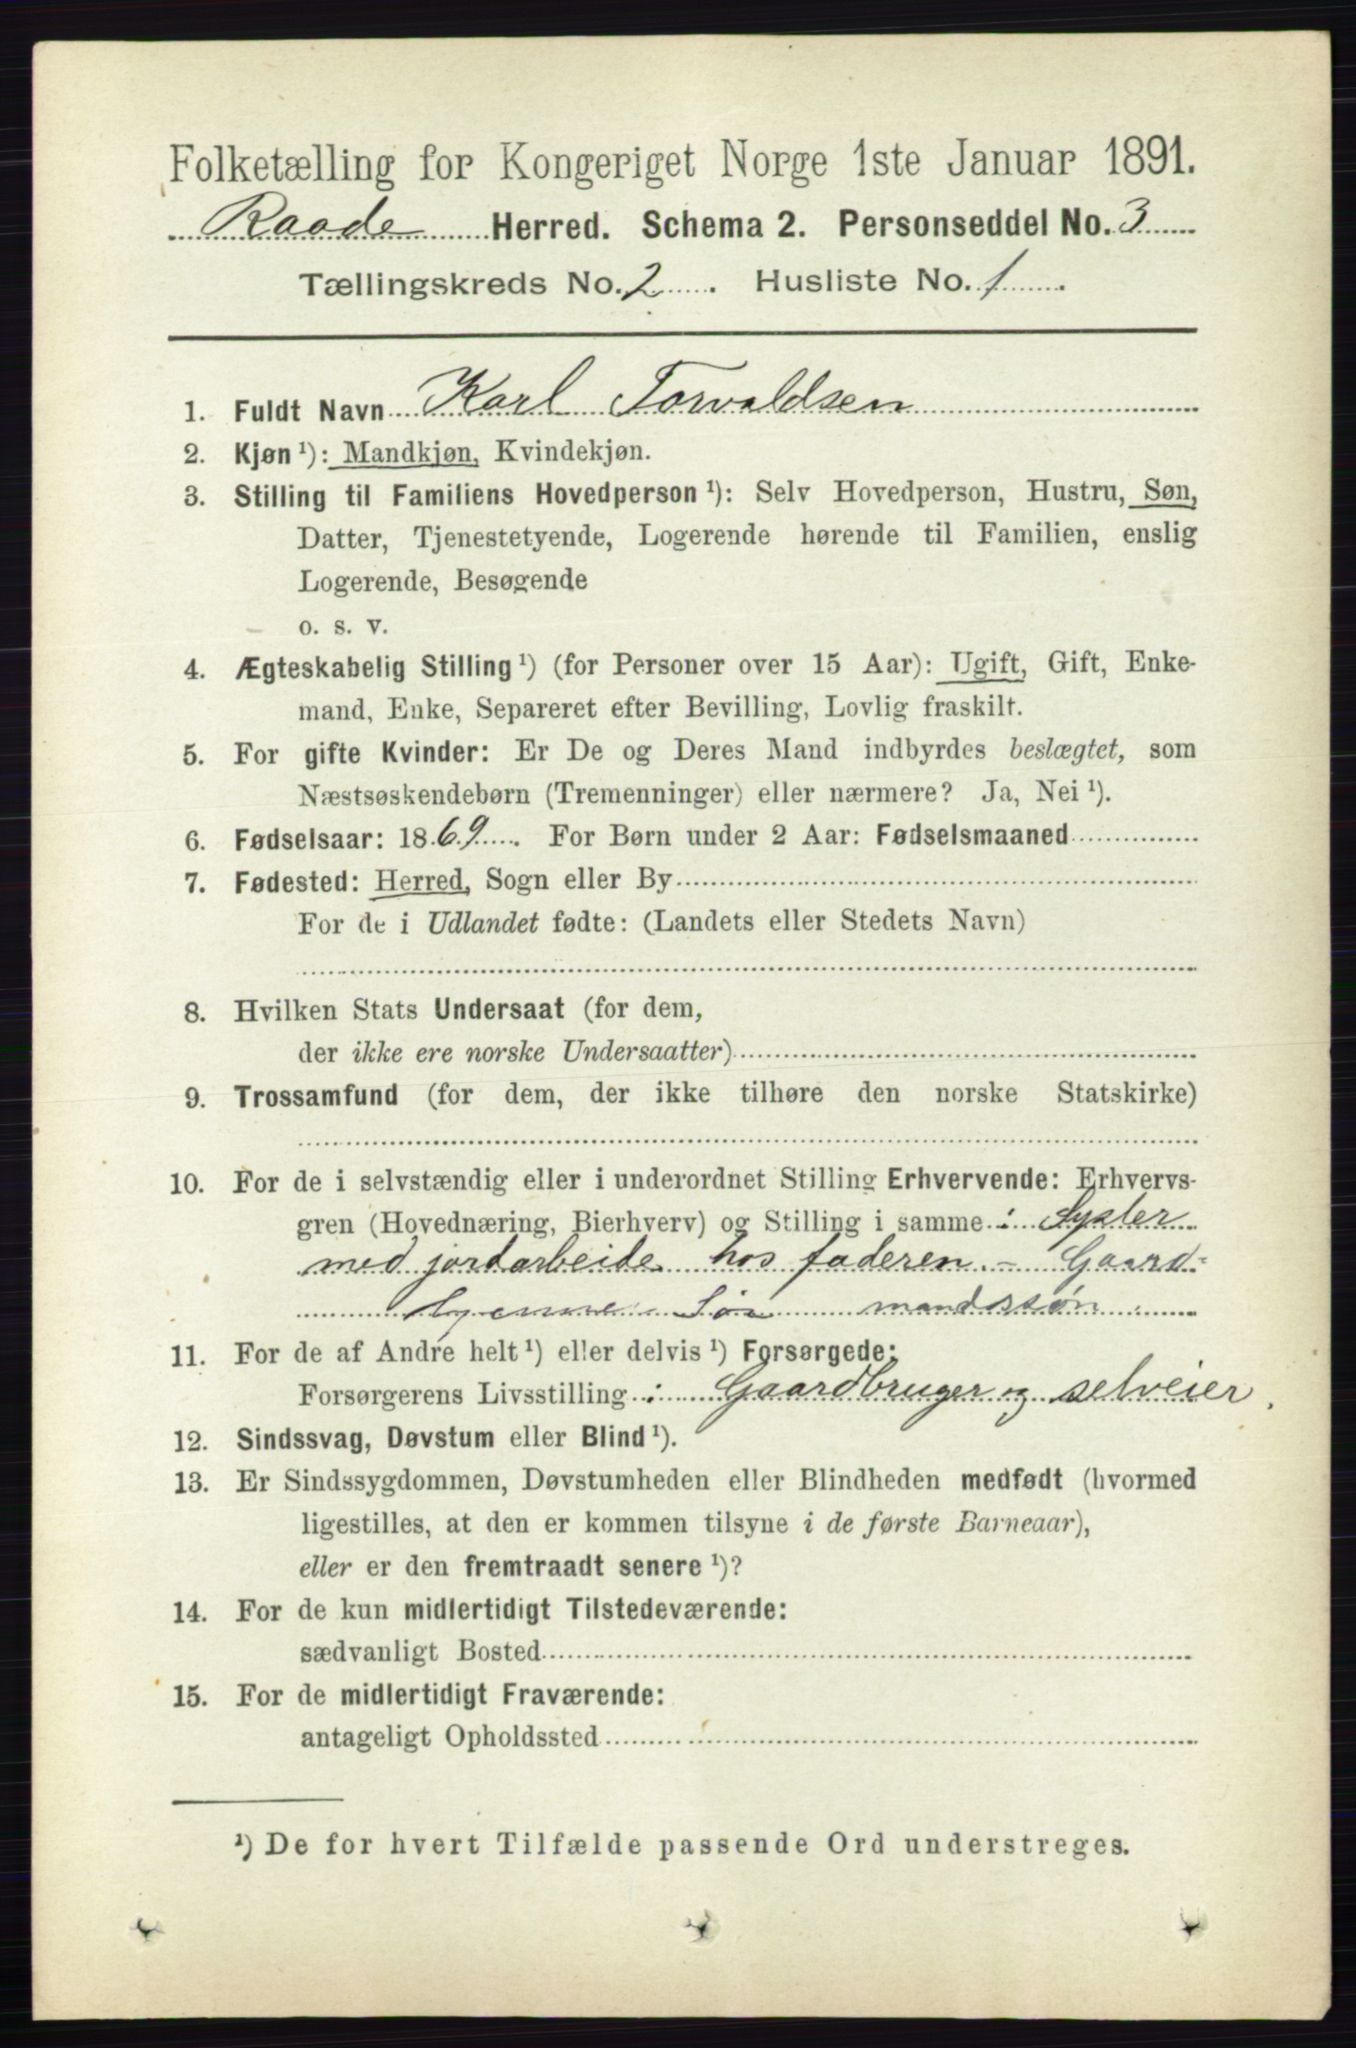 Folketælling for Kongeriget Norge 1ste Januar 1891.
Raade Herred. Schema 2. Personseddel No. 3
Tællingskreds No. 2. Husliste No. 1.
1. Fuldt Navn Karl Torvaldsen
2. Kjøn ¹): Mandkjøn, Kvindekjøn.
3. Stilling til Familiens Hovedperson ¹): Selv Hovedperson, Hustru, Søn,
Datter, Tjenestetyende, Logerende hørende til Familien, enslig
Logerende, Besøgende
o. s. v.
4. Ægteskabelig Stilling ¹) (for Personer over 15 Aar): Ugift, Gift, Enke-
mand, Enke, Separeret efter Bevilling, Lovlig fraskilt.
5. For gifte Kvinder: Er De og Deres Mand indbyrdes beslægtet, som
Næstsøskendebørn (Tremenninger) eller nærmere? Ja, Nei ¹).
6. Fødselsaar: 1869. For Børn under 2 Aar: Fødselsmaaned
7. Fødested: Herred, Sogn eller By
For de i Udlandet fødte: (Landets eller Stedets Navn)
8. Hvilken Stats Undersaat (for dem,
der ikke ere norske Undersaatter)
9. Trossamfund (for dem, der ikke tilhøre den norske Statskirke)
10. For de i selvstændig eller i underordnet Stilling Erhvervende: Erhvervs-
gren (Hovednæring, Bierhverv) og Stilling i samme : Sysler
med jordarbeide hos faderen. – Gaard-
mandssøn
11. For de af Andre helt ¹) eller delvis ¹) Forsørgede:
Forsørgerens Livsstilling : Gaardbruger og selveier.
12. Sindssvag, Døvstum eller Blind ¹).
13. Er Sindssygdommen, Døvstumheden eller Blindheden medfødt (hvormed
ligestilles, at den er kommen tilsyne i de første Barneaar),
eller er den fremtraadt senere ¹)?
14. For de kun midlertidigt Tilstedeværende:
sædvanligt Bosted
15. For de midlertidigt Fraværende:
antageligt Opholdssted
¹) De for hvert Tilfælde passende Ord understreges.